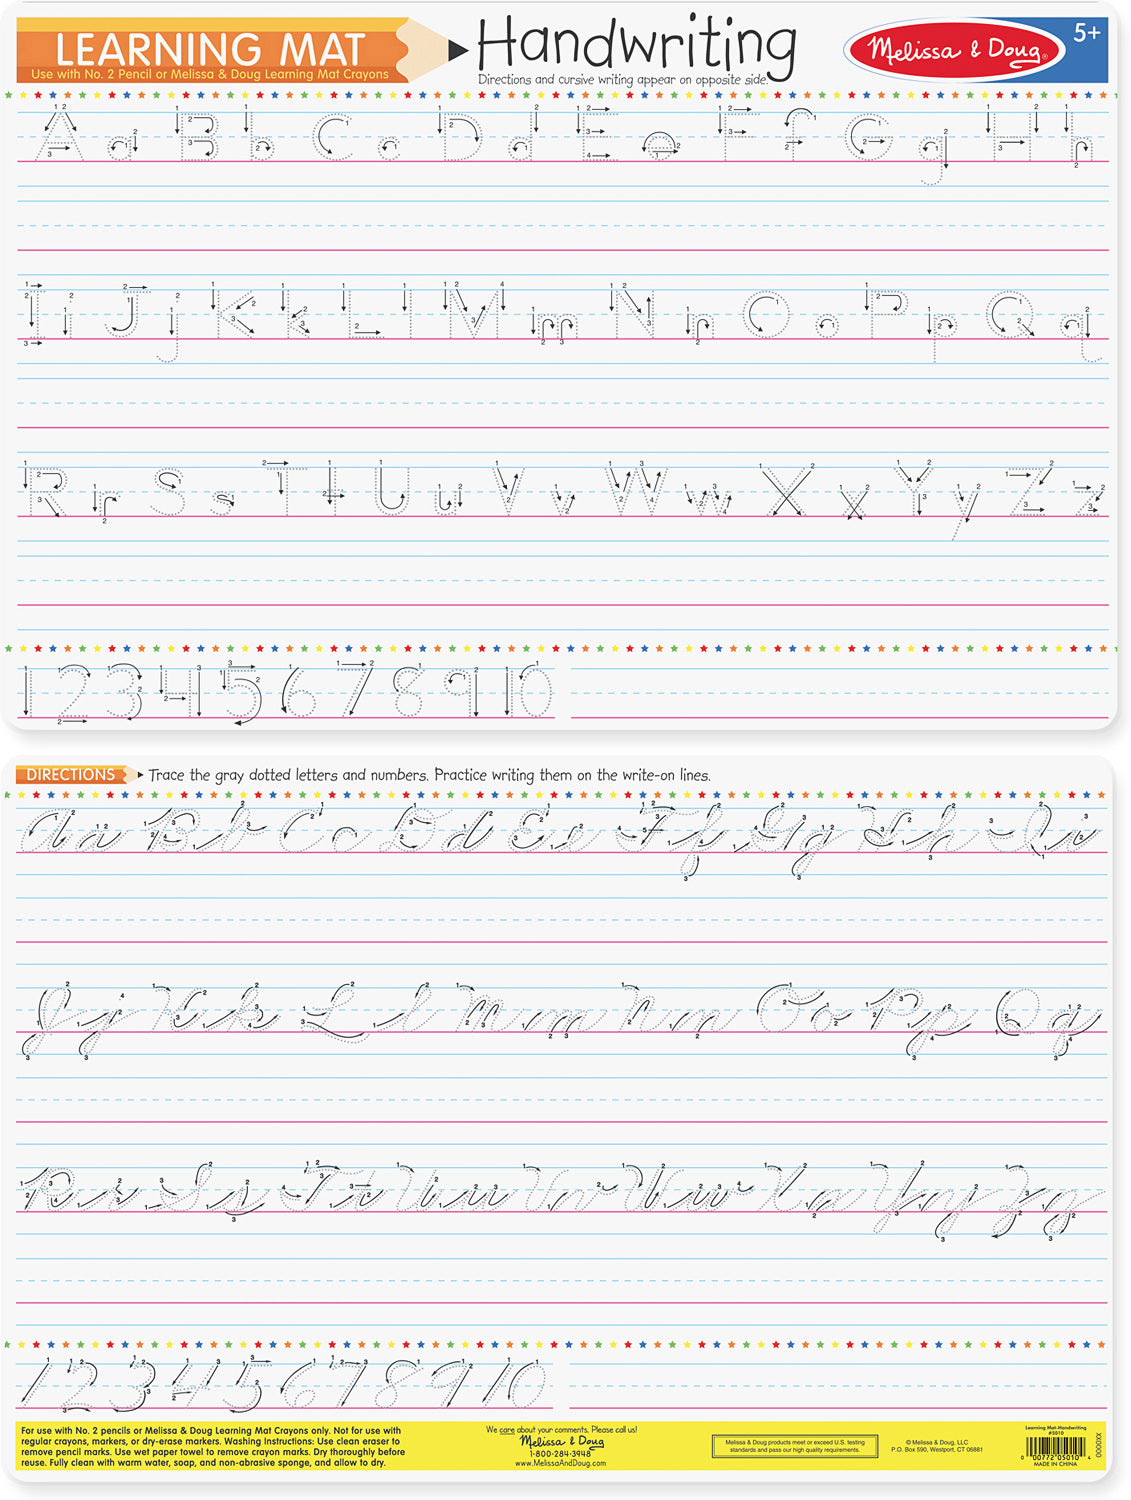 LEARNING MAT
Use with No. 2 Pencil or Melissa & Doug Learning Mat Crayons
Handwriting
Directions and cursive writing appear on opposite side.
Melissa & Doug®
5+
A a B b C c D d E e F f G g H h
I i J j K k L l M m N n O o P p Q q
R r S s T t U u V v W w X x Y y Z z
1 2 3 4 5 6 7 8 9 10
DIRECTIONS
Trace the gray dotted letters and numbers. Practice writing them on the write-on lines.
A a B b C c D d E e F f G g H h I i
J j K k L l M m N n O o P p Q q
R r S s T t U u V v W w X x Y y Z z
1 2 3 4 5 6 7 8 9 10
For use with No. 2 pencils or Melissa & Doug Learning Mat Crayons only. Not for use with
regular crayons, markers, or dry-erase markers. Washing Instructions: Use clean eraser to
remove pencil marks. Use wet paper towel to remove crayon marks. Dry thoroughly before
reuse. Fully clean with warm water, soap, and non-abrasive sponge, and allow to dry.
We care about your comments. Please call us!
Melissa & Doug
1-800-284-3948
www.MelissaAndDoug.com
Melissa & Doug products meet or exceed U.S. testing
standards and pass our high quality requirements.
© Melissa & Doug, LLC
P.O. Box 590, Westport, CT 06881
Learning Mat-Handwriting
#5010
0 00772 05010 4
MADE IN CHINA
XX0000